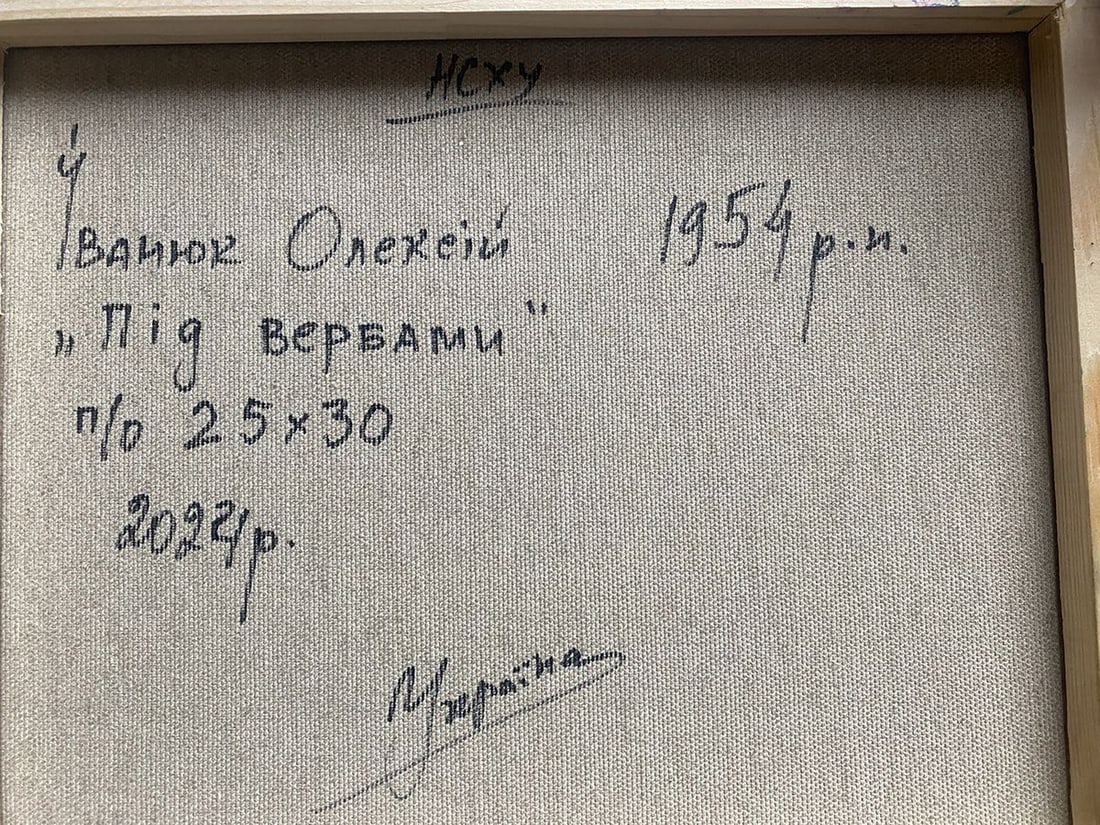 НСХУ
Іванюк Олексій 1954 р.н.
„Під вербами"
п/о 25х30
2024р.
Україна